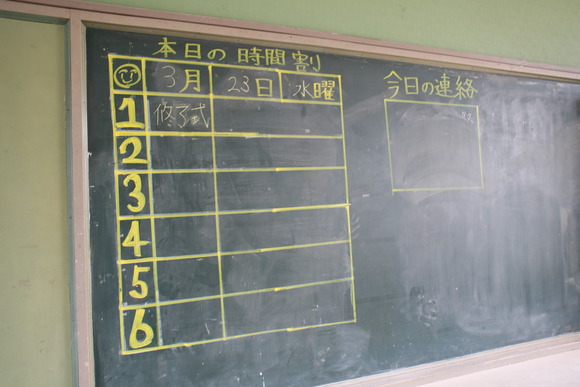 本日の時間割
3月 23日 水曜
1 修了式
2
3
4
5
6
今日の連絡